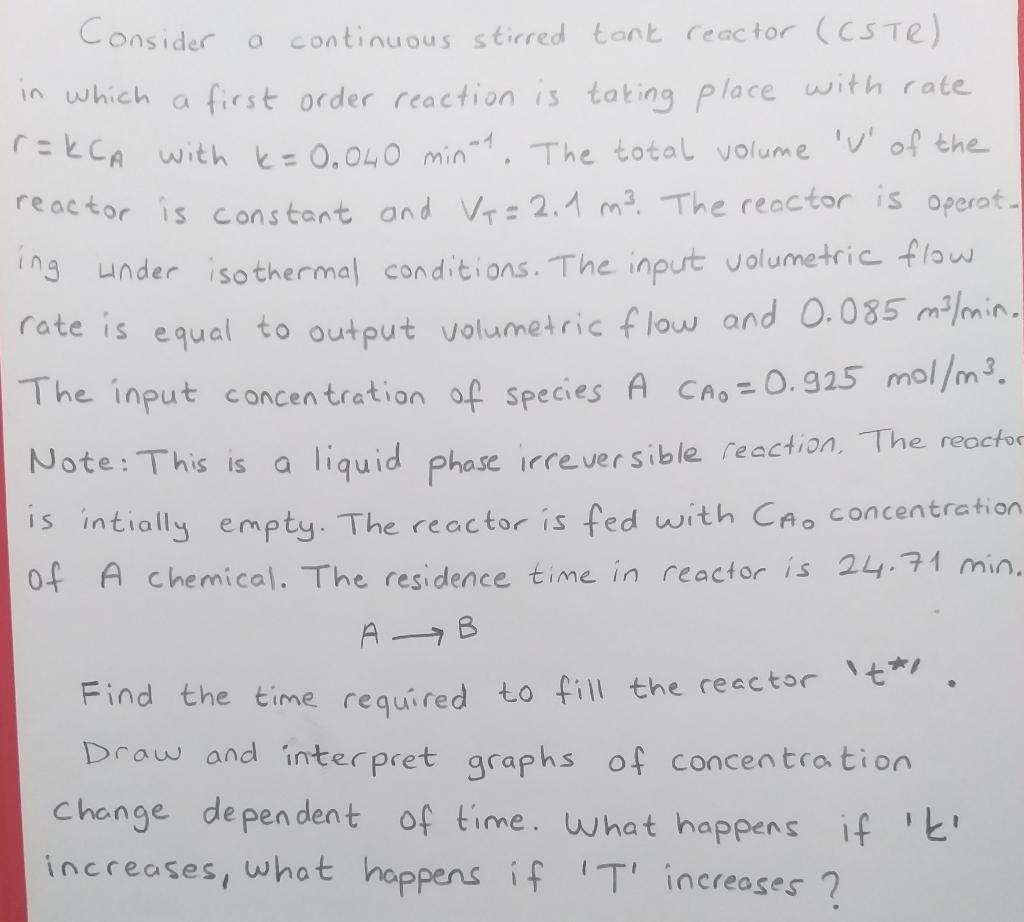 Consider a continuous stirred tank reactor (CSTR)
in which a first order reaction is taking place with rate
r = kCA with k = 0.040 min⁻¹. The total volume 'V' of the
reactor is constant and VT = 2.1 m³. The reactor is operat-
ing under isothermal conditions. The input volumetric flow
rate is equal to output volumetric flow and 0.085 m³/min.
The input concentration of species A CA₀ = 0.925 mol/m³.
Note: This is a liquid phase irreversible reaction. The reactor
is intially empty. The reactor is fed with CA₀ concentration
of A chemical. The residence time in reactor is 24.71 min.
A → B
Find the time required to fill the reactor 't*'.
Draw and interpret graphs of concentration
change dependent of time. What happens if 'k'
increases, what happens if 'T' increases?